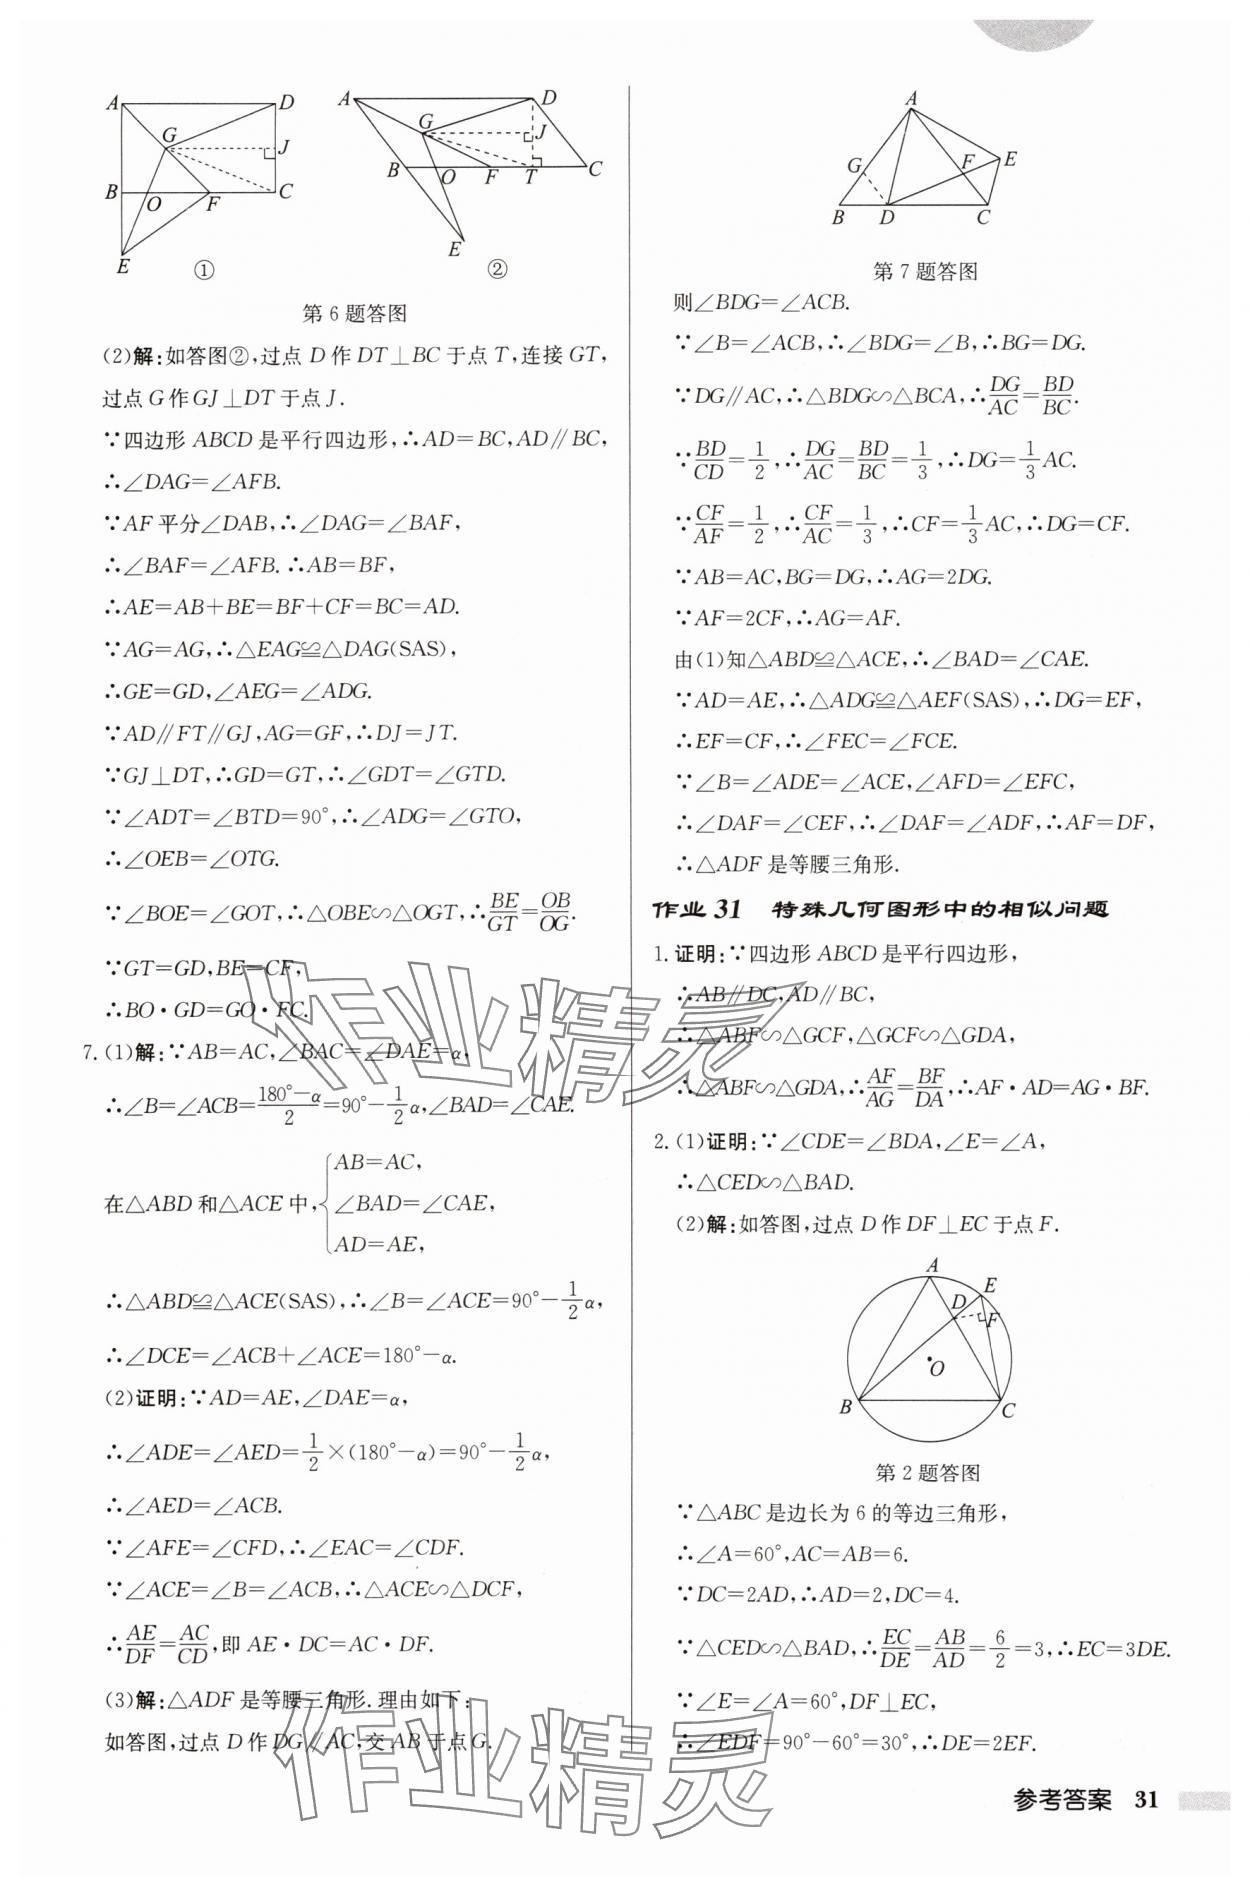 A D G J B O F C E ①
A D G J B O F T C E ②
第 6 题答图
(2)解:如答图②,过点 D 作 DT⊥BC 于点 T,连接 GT,
过点 G 作 GJ⊥DT 于点 J.
∵四边形 ABCD 是平行四边形,∴AD=BC,AD∥BC,
∴∠DAG=∠AFB.
∵AF 平分∠DAB,∴∠DAG=∠BAF,
∴∠BAF=∠AFB.∴AB=BF,
∴AE=AB+BE=BF+CF=BC=AD.
∵AG=AG,∴△EAG≌△DAG(SAS),
∴GE=GD,∠AEG=∠ADG.
∵AD∥FT∥GJ,AG=GF,∴DJ=JT.
∵GJ⊥DT,∴GD=GT,∴∠GDT=∠GTD.
∵∠ADT=∠BTD=90°,∴∠ADG=∠GTO,
∴∠OEB=∠OTG.
∵∠BOE=∠GOT,∴△OBE∽△OGT,∴BE/GT=OB/OG.
∵GT=GD,BE=CF,
∴BO·GD=GO·FC.
7.(1)解:∵AB=AC,∠BAC=∠DAE=α,
∴∠B=∠ACB=(180°-α)/2=90°-1/2α,∠BAD=∠CAE.
在△ABD 和△ACE 中,{AB=AC,
∠BAD=∠CAE,
AD=AE,
∴△ABD≌△ACE(SAS),∴∠B=∠ACE=90°-1/2α,
∴∠DCE=∠ACB+∠ACE=180°-α.
(2)证明:∵AD=AE,∠DAE=α,
∴∠ADE=∠AED=1/2×(180°-α)=90°-1/2α,
∴∠AED=∠ACB.
∵∠AFE=∠CFD,∴∠EAC=∠CDF.
∵∠ACE=∠B=∠ACB,∴△ACE∽△DCF,
∴AE/DF=AC/CD,即 AE·DC=AC·DF.
(3)解:△ADF 是等腰三角形.理由如下:
如答图,过点 D 作 DG∥AC,交 AB 于点 G.
A G F E B D C
第 7 题答图
则∠BDG=∠ACB.
∵∠B=∠ACB,∴∠BDG=∠B,∴BG=DG.
∵DG∥AC,∴△BDG∽△BCA,∴DG/AC=BD/BC.
∵BD/CD=1/2,∴DG/AC=BD/BC=1/3,∴DG=1/3AC.
∵CF/AF=1/2,∴CF/AC=1/3,∴CF=1/3AC,∴DG=CF.
∵AB=AC,BG=DG,∴AG=2DG.
∵AF=2CF,∴AG=AF.
由(1)知△ABD≌△ACE,∴∠BAD=∠CAE.
∵AD=AE,∴△ADG≌△AEF(SAS),∴DG=EF,
∴EF=CF,∴∠FEC=∠FCE.
∵∠B=∠ADE=∠ACE,∠AFD=∠EFC,
∴∠DAF=∠CEF,∴∠DAF=∠ADF,∴AF=DF,
∴△ADF 是等腰三角形.
作业 31 特殊几何图形中的相似问题
1.证明:∵四边形 ABCD 是平行四边形,
∴AB∥DC,AD∥BC,
∴△ABF∽△GCF,△GCF∽△GDA,
∴△ABF∽△GDA,∴AF/AG=BF/DA,∴AF·AD=AG·BF.
2.(1)证明:∵∠CDE=∠BDA,∠E=∠A,
∴△CED∽△BAD.
(2)解:如答图,过点 D 作 DF⊥EC 于点 F.
A E D F O B C
第 2 题答图
∵△ABC 是边长为 6 的等边三角形,
∴∠A=60°,AC=AB=6.
∵DC=2AD,∴AD=2,DC=4.
∵△CED∽△BAD,∴EC/DE=AB/AD=6/2=3,∴EC=3DE.
∵∠E=∠A=60°,DF⊥EC,
∴∠EDF=90°-60°=30°,∴DE=2EF.
作业精灵
作业精灵
参考答案 31